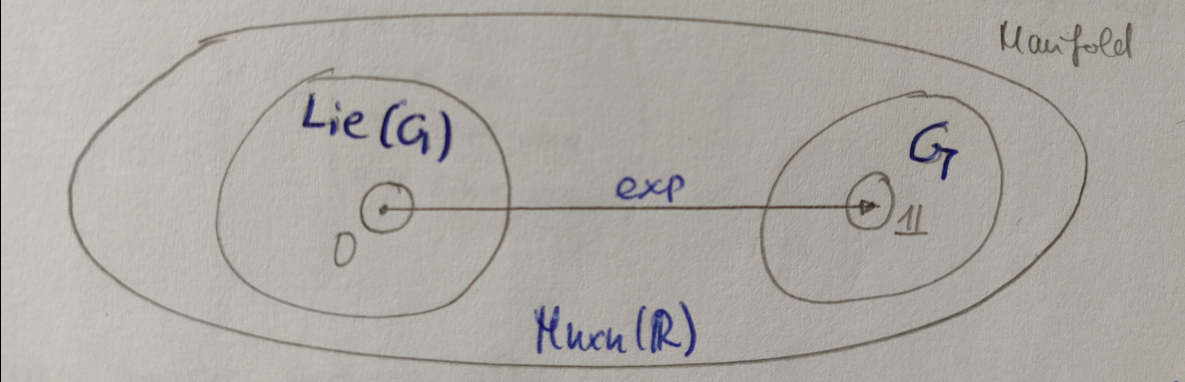 Manifold
Lie(G)
G
exp
0
𝟙
Mnxn(ℝ)